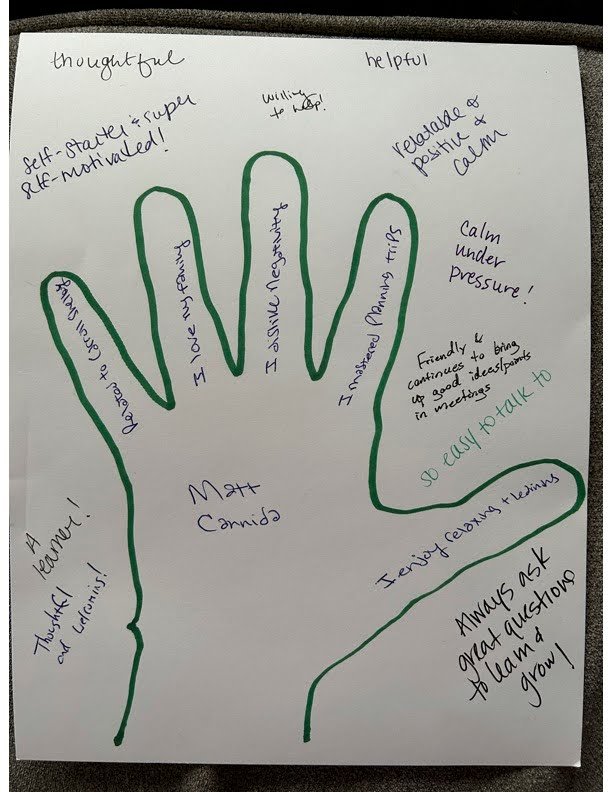 thoughtful
helpful
willing
to help!
self-starter & super
self-motivated!
relatable &
positive &
calm
Calm
under
pressure!
Related to Carroll Shelby
I love my family
I dislike Negativity
I mastered planning trips
Friendly &
continues to bring
up good ideas/points
in meetings
so easy to talk to
Matt
Cannida
I enjoy relaxing +
A
learner!
Thoughtful
and welcoming!
Always ask
great questions
to learn &
grow!